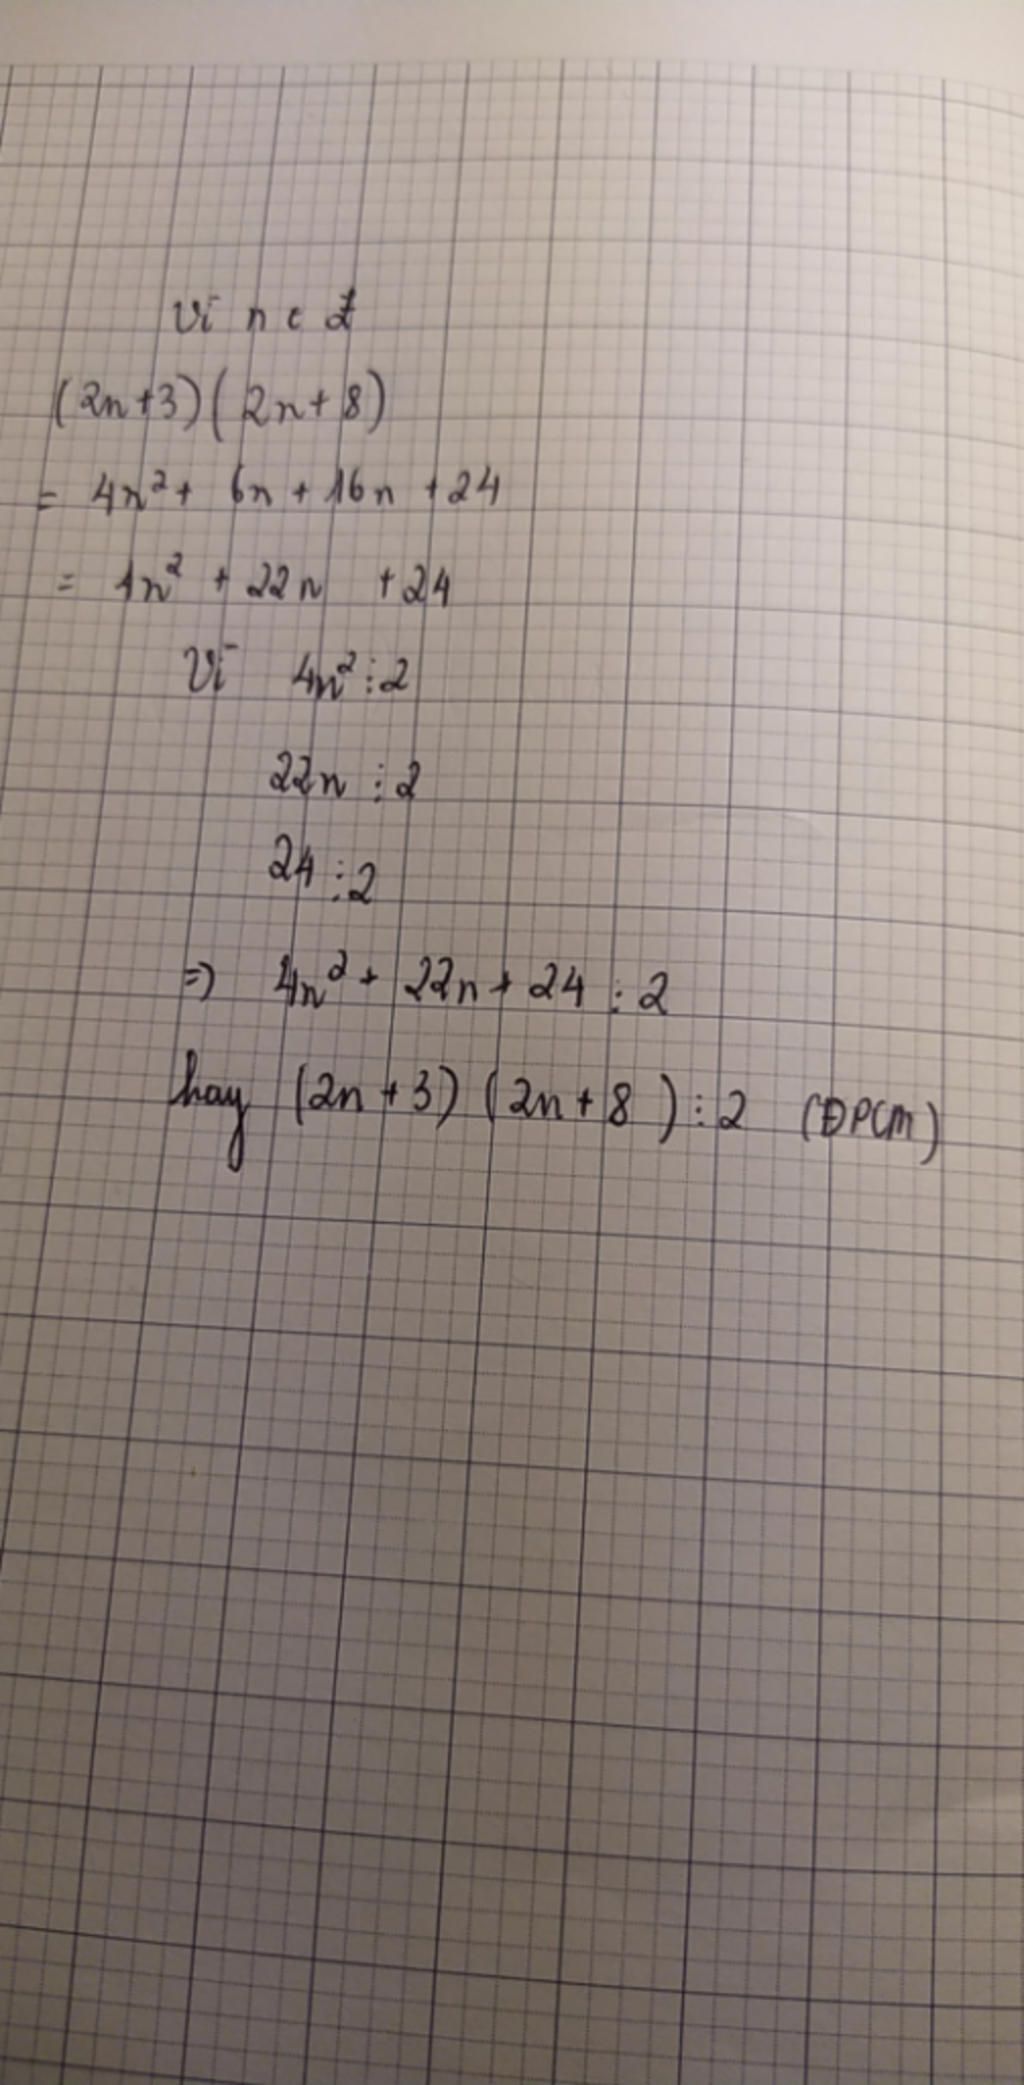 Vì n ∈ Z
(2n+3)(2n+8)
= 4n² + 6n + 16n + 24
= 4n² + 22n + 24
Vì 4n² ⋮ 2
22n ⋮ 2
24 ⋮ 2
=> 4n² + 22n + 24 ⋮ 2
hay (2n+3)(2n+8) ⋮ 2 (ĐPCM)